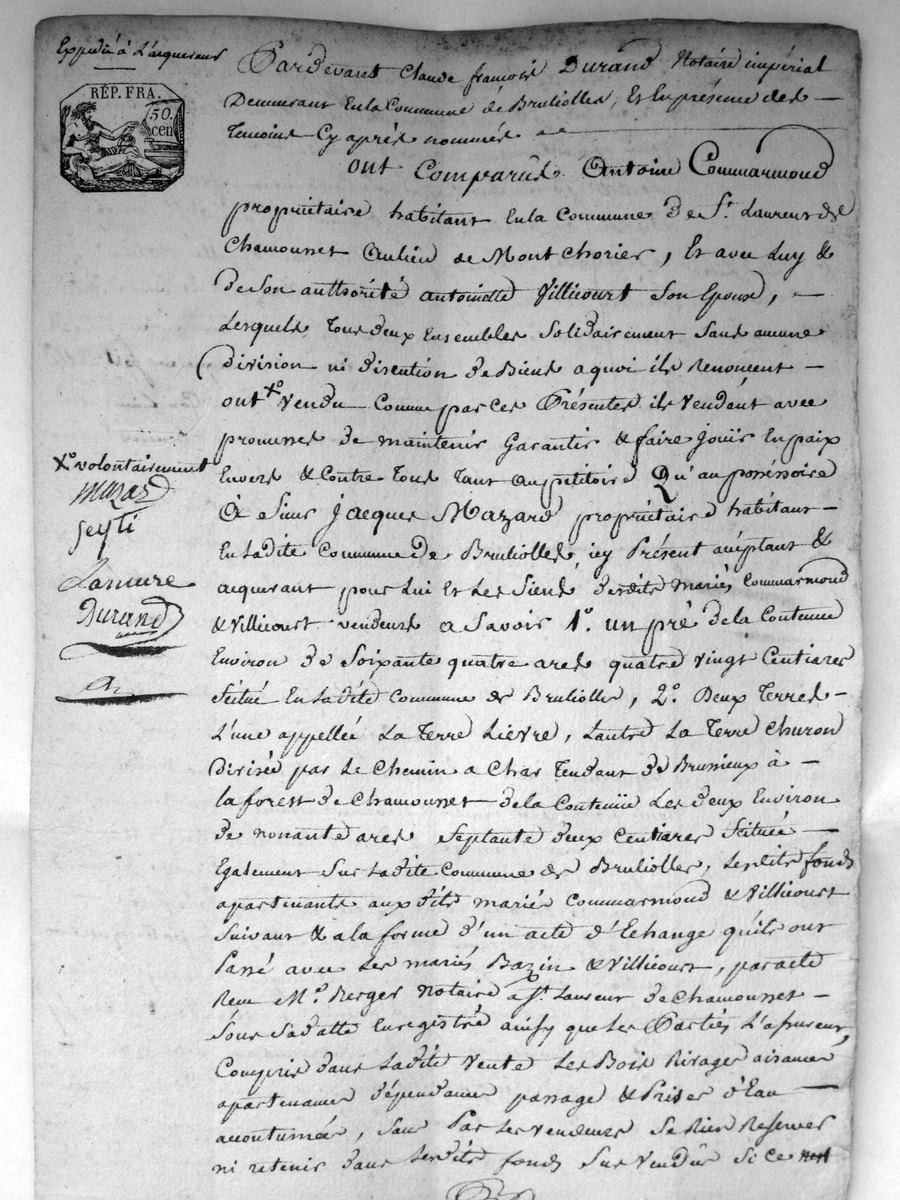 Expédié à L'acquereur
RÉP. FRA.
50.
cen
Pardevant Claude françois Durand Notaire impérial
Demeurant En la Commune de Brulliolles, Et En présence des
Temoins Cy après nommés
ont Comparûs Antoine Commarmond
propriétaire habitant En la Commune De St. Laurent de
Chamousset Aulieu de Mont Chorier, Et avec Luy &
De Son authorité antoinette Villicourt Son Epouse,
Lesquels Tous deux Ensembles Solidairement Sans aucune
Division ni discution de Biens a quoi ils Renoncent
ont Xo Vendu Comme par ces Présentes ils Vendent avec
promesse de maintenir Garantir & faire jouir En paix
Envers & Contre Tous Tant au petitoire Qu'au possessoire
A Sieur Jacques Mazard propriétaire habitant
En Ladite Commune De Brulliolles, icy Présent acceptant &
acquerant pour Lui Et Les Siens Desdits mariés Commarmond
& Villicourt vendeurs a Savoir 1o. un pré de la Contenue
Environ De Soixante quatre ares quatre vingt Centiares
Scitué En Ladite Commune de Brulliolles, 2o. Deux Terres
L'une appellée La Terre Lievre, Lautre La Terre Churon
Divisée par Le Chemin a Char Tendant de Brussieux à
la forest de Chamousset de la Contenüe Les deux Environ
de nonante ares Septante deux Centiares Scituée
Egalement Sur Ladite Commune de Brulliolles, Lesdits fonds
apartenants aux dits mariés Commarmond & Villicourt
Suivant & a la forme d'un acte d'Echange quils ont
Passé avec Les mariés Bazin & Villicourt, par acte
Recu Me. Berger Notaire a St. Laurent de Chamousset
Sous Sa datte Enregistré ainsy que Les Parties L'assurent,
Compris dans Ladite Vente Les Bois Rivages aisances
apartenances dépendances passage & Prises d'Eau
accoutumés, Sans Par Les vendeurs Se Rien Reserver
ni retenir dans Lesdits fonds Sus Vendûs Si ce
Xo volontairement
Mazard
Lamure
Durand